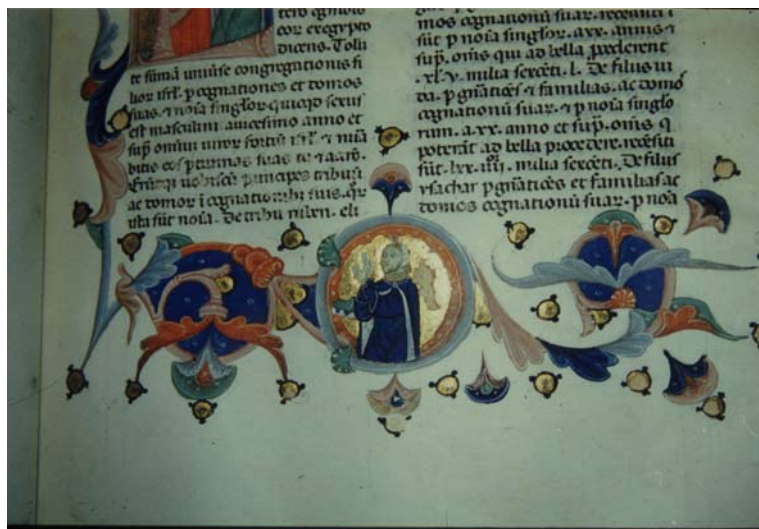 cor ex egypto
dicens. Tolli
te sumā uniuse congregationis fi
lior isrl. p cognationes et domos
suas. ⁊ noīa singlor quicqd sexus
est masculini. a uicesimo anno et
sup omniū uiror fortiū isrl. ⁊ nūa
bitis eos p turmas suas tu ⁊ aarō.
principes tribuū
ac domor i cognationibȝ suis. qr
ista sūt noīa. De tribu ruben. eli
mos cognationū suar. recensiti
sūt p noīa singlor. a xx. annis ⁊
sup. om̄s qui ad bella procederent
.xl. v. milia sexcēti. l. De filiis iu
da. p gnatiōes ⁊ familias. ac domos
cognationū suar. ⁊ p noīa singlo
rum. a. xx. anno et sup. om̄s q
poterāt ad bella procedere. recēsiti
sūt. lxx. iiii. milia sexcēti. De filiis
ysachar p gnatiōes et familias ac
domos cognationū suar. p noīa